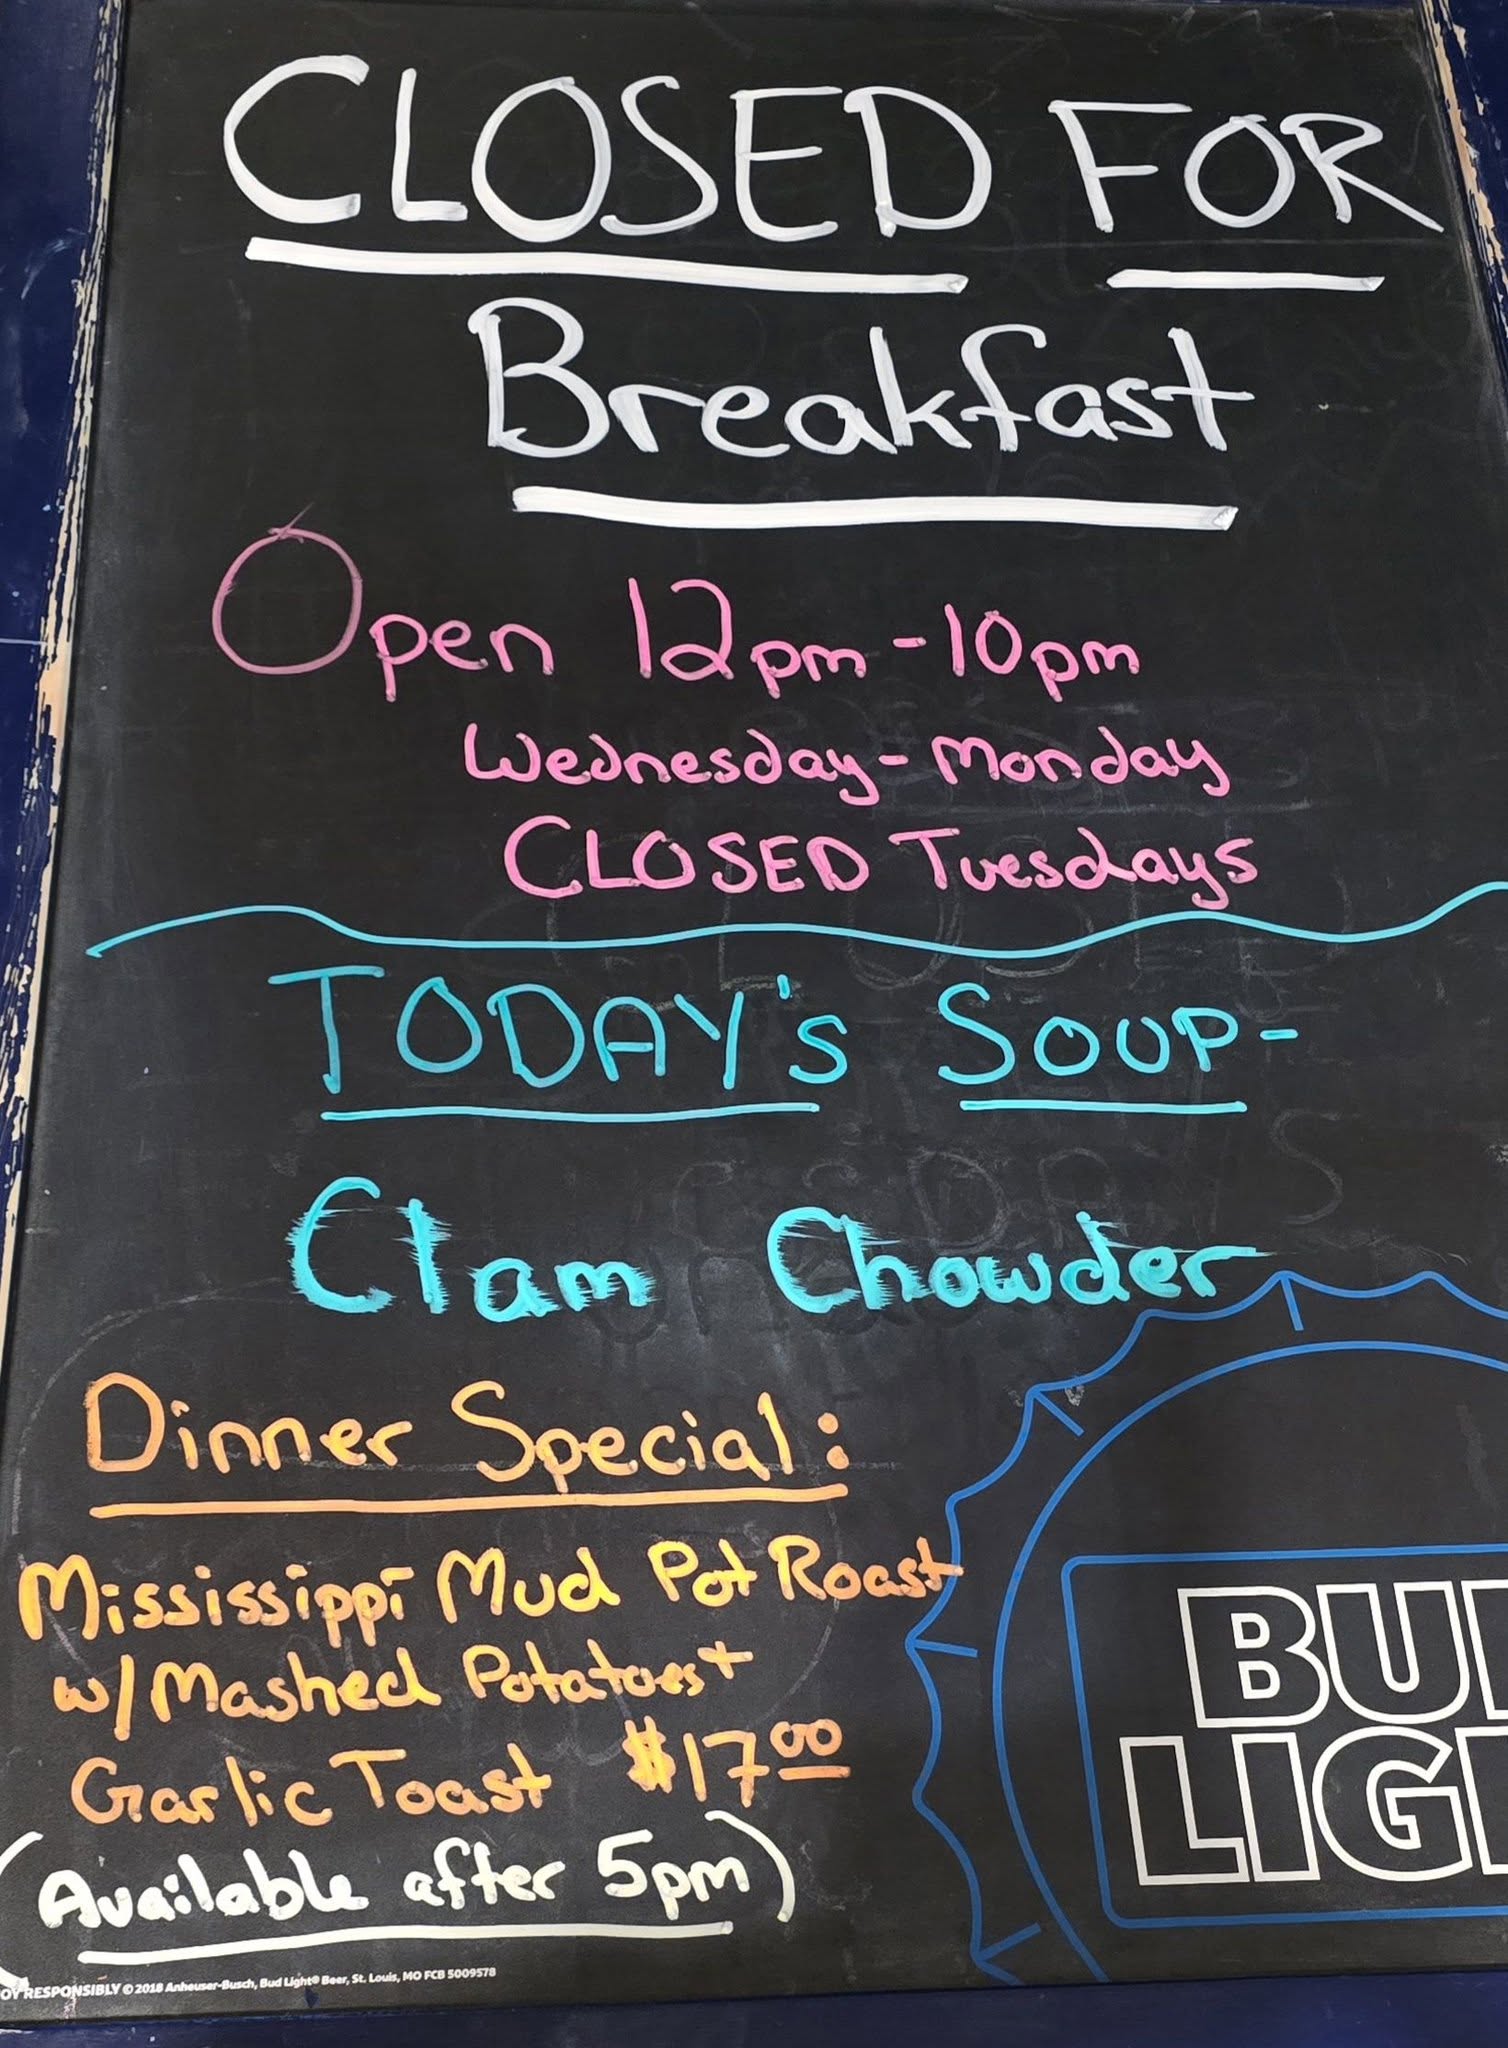 CLOSED FOR
Breakfast
Open 12pm-10pm
Wednesday-Monday
CLOSED Tuesdays
TODAY's SOUP-
Clam Chowder
Dinner Special:
Mississippi Mud Pot Roast
w/Mashed Potatoes+
Garlic Toast $17.00
(Available after 5pm)
BU
LIG
OY RESPONSIBLY © 2018 Anheuser-Busch, Bud Light® Beer, St. Louis, MO FCB 5009578